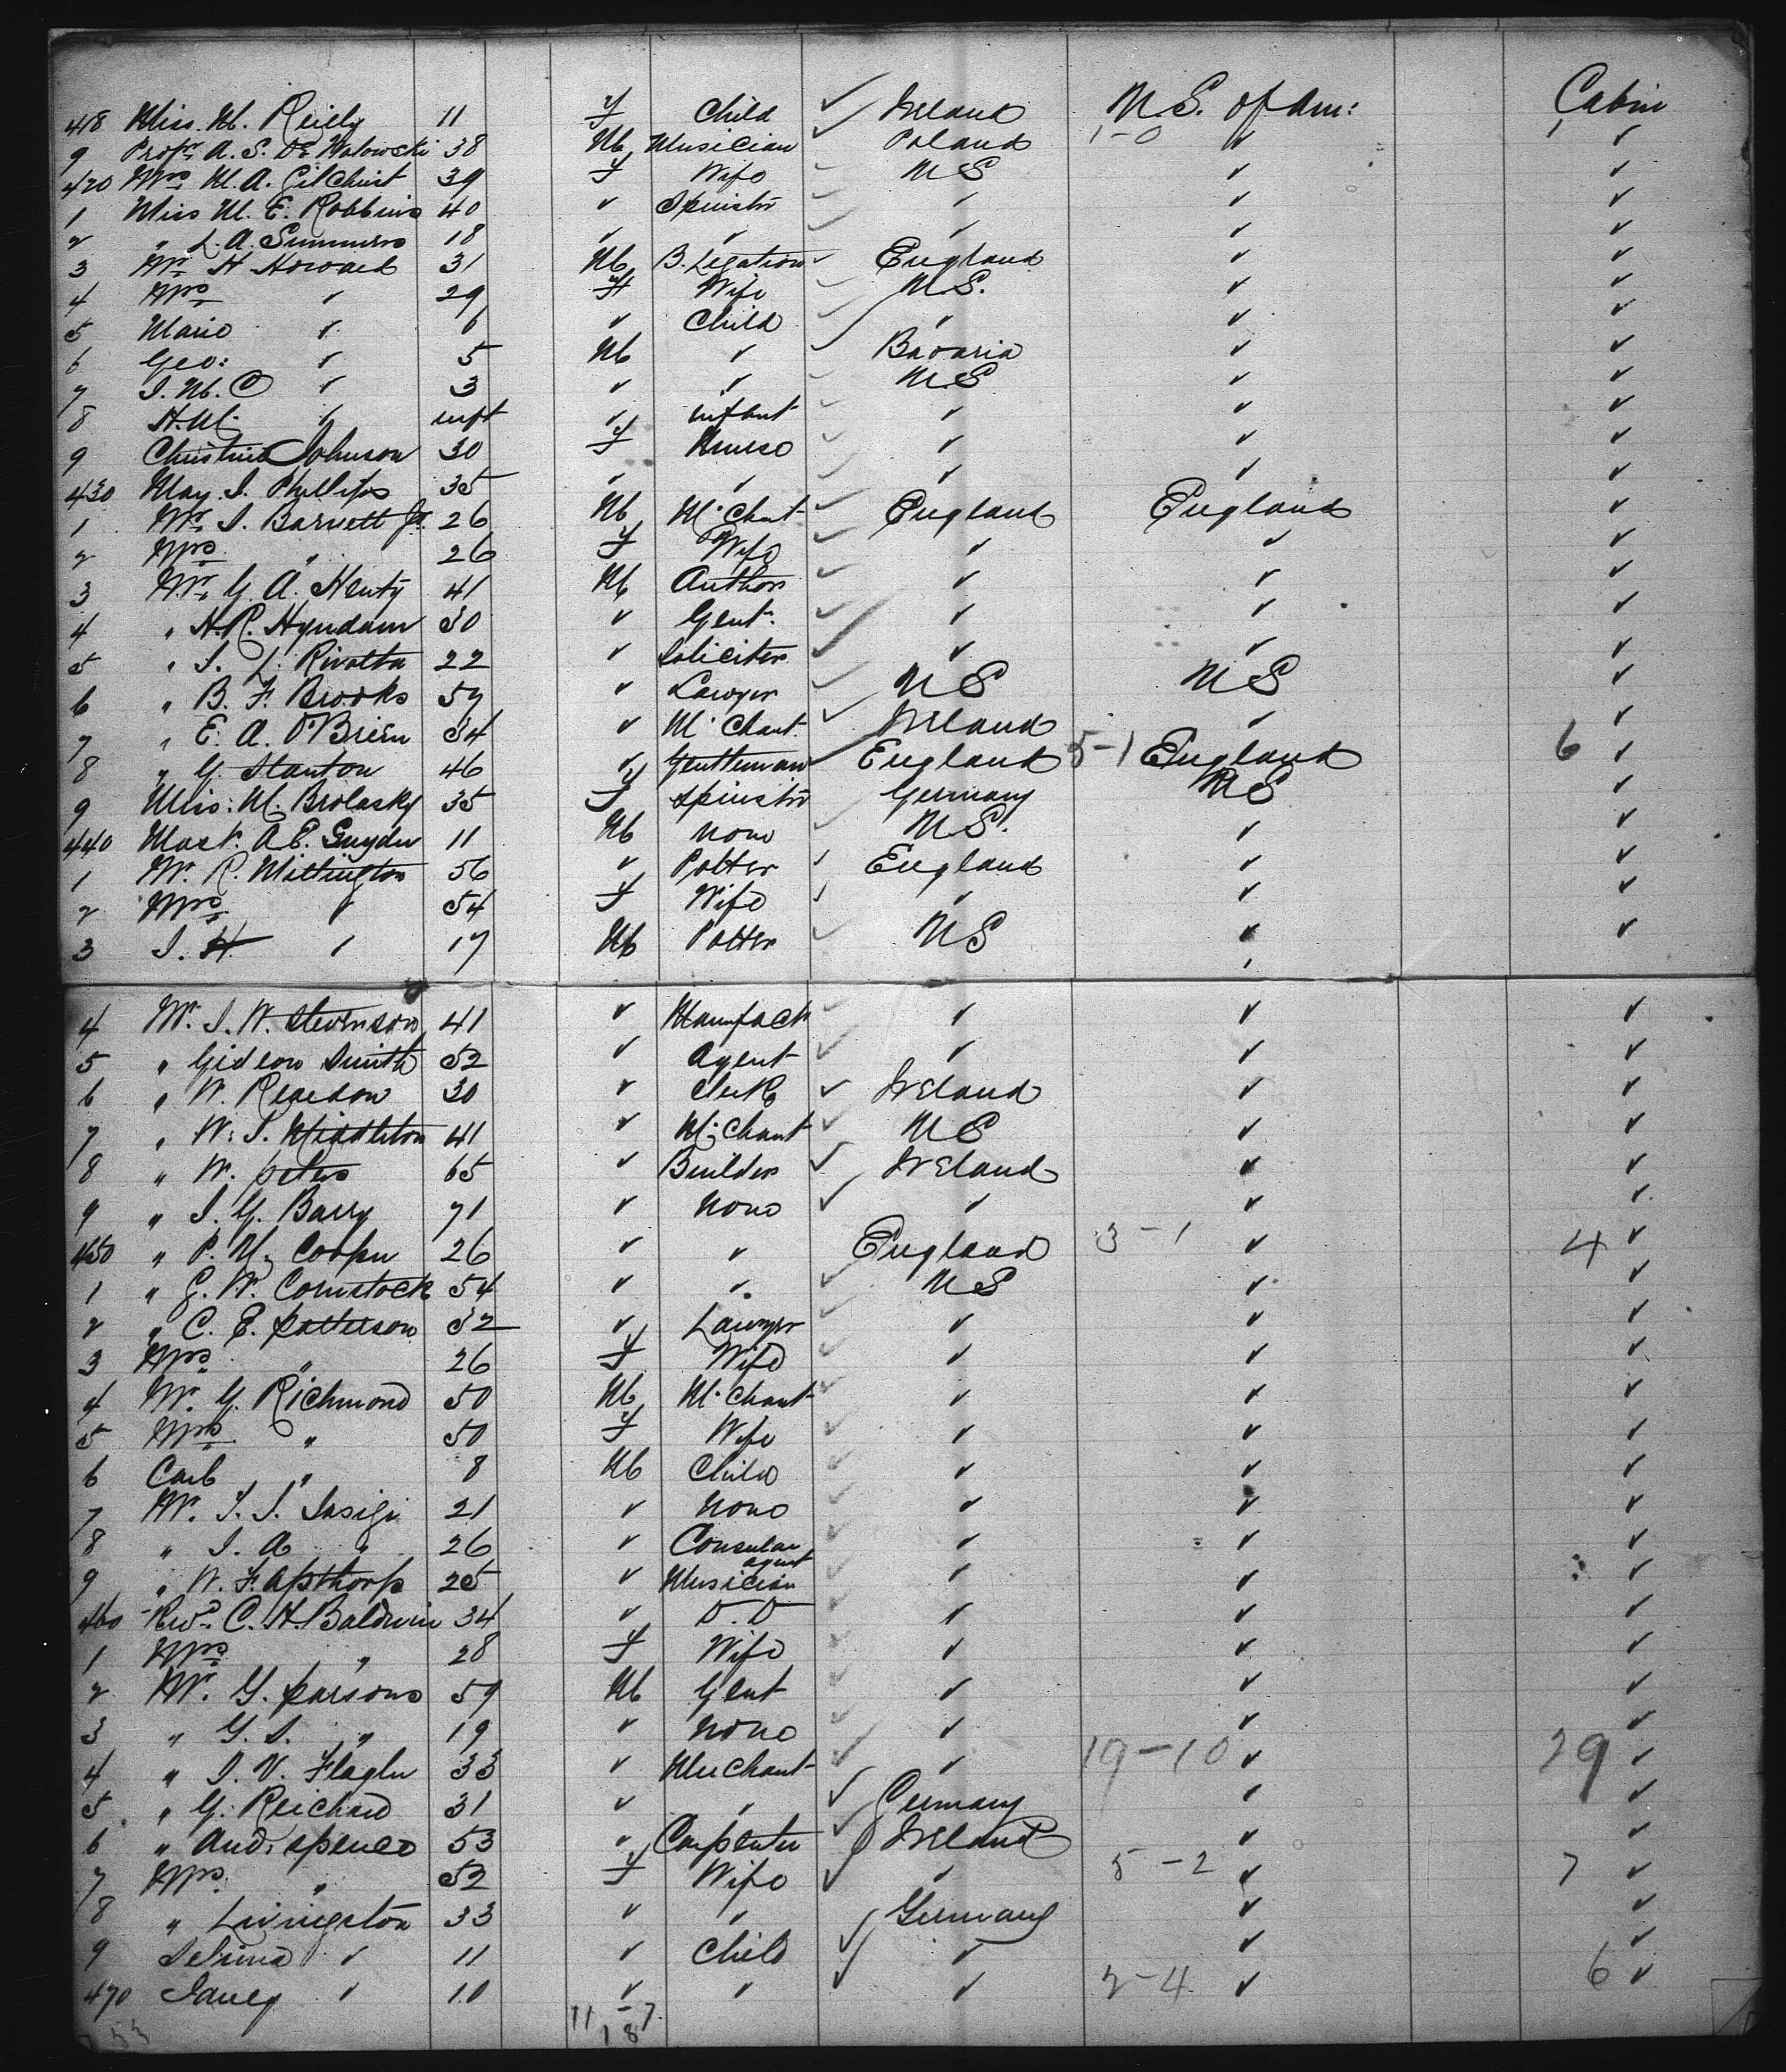 418 Miss. M. Reilly 11 f Child ✓ Ireland U.S. of Am: Cabin
9 Profr A. S. De Wolowski 38 M Musician ✓ Poland 1-0 ✓ ✓
420 Mrs M. A. Gilchrist 39 f Wife ✓ U S ✓ ✓
1 Miss M. E. Robbins 40 ✓ Spinstr ✓ ✓ ✓ ✓
2 " L. A. Summers 18 ✓ ✓ ✓ ✓ ✓ ✓
3 Mr H Howard 31 M B. Legation ✓ England ✓ ✓
4 Mrs ✓ 29 f Wife ✓ U.S. ✓ ✓
5 Marie ✓ 6 ✓ Child ✓ ✓ ✓ ✓
6 Geo: ✓ 5 M ✓ ✓ Bavaria ✓ ✓
7 I. M. C ✓ 3 ✓ ✓ ✓ U.S ✓ ✓
8 H. M. ✓ inft ✓ infant ✓ ✓ ✓ ✓
9 Christina Johnson 30 f Nurse ✓ ✓ ✓ ✓
430 May. I. Phillips 35 ✓ ✓ ✓ ✓ ✓ ✓
1 Mr. I. Barnett Jr. 26 M M'Chnt ✓ England England ✓
2 Mrs " 26 f Wife ✓ ✓ ✓ ✓
3 Mr. G. A. Henty 41 M Author ✓ ✓ ✓ ✓
4 " H. R. Hyndam 30 ✓ Gent. ✓ ✓ ✓ ✓
5 " I. L. Rivolta 22 ✓ Soliciter ✓ ✓ ✓ ✓
6 " B. F. Brooks 57 ✓ Lawyer ✓ U S U S ✓
7 " E. A. O'Brien 34 ✓ M'Chant ✓ Ireland ✓ ✓
8 " G. Stanton 46 ✓ Gentleman ✓ England 5-1 England 6 ✓
9 Miss: M. Brolasky 35 f Spinstr Germany U S ✓
440 Mast. A E. Snyder 11 M None ✓ U.S. ✓ ✓
1 Mr. R. Millington 56 ✓ Potter ✓ England ✓ ✓
2 Mrs ✓ 54 f Wife ✓ ✓ ✓ ✓
3 I. H ✓ 17 M Potter ✓ U S ✓ ✓
4 Mr. I. W. Stevenson 41 ✓ Manufactr ✓ ✓ ✓ ✓
5 " Gideon Smith 52 ✓ Agent ✓ ✓ ✓ ✓
6 " W. Reardon 30 ✓ Clerk ✓ Ireland ✓ ✓
7 " W. I. Middleton 41 ✓ M'Chant ✓ U S ✓ ✓
8 " W. peters 65 ✓ Builder ✓ Ireland ✓ ✓
9 " I. G. Barry 71 ✓ None ✓ ✓ ✓ ✓
450 " P. M. Cooper 26 ✓ ✓ England 3-1 ✓ 4 ✓
1 " G. W. Comstock 54 ✓ " ✓ U S ✓ ✓
2 " C. E. patterson 32 ✓ Lawyer ✓ ✓ ✓ ✓
3 Mrs. " 26 f Wife ✓ ✓ ✓ ✓
4 Mr. G. Richmond 50 M M'Chant ✓ ✓ ✓ ✓
5 Mrs " 50 f Wife ✓ ✓ ✓ ✓
6 Carl " 8 M Child ✓ ✓ ✓ ✓
7 Mr. T. I. Iasigi 21 ✓ None ✓ ✓ ✓ ✓
8 " I. A " 26 ✓ Consular agent ✓ ✓ ✓ ✓
9 " W. F. Apthorp 25 ✓ Musician ✓ ✓ ✓ ✓
460 Revd. C. H. Baldwin 34 ✓ D. D ✓ ✓ ✓ ✓
1 Mrs " 28 f Wife ✓ ✓ ✓ ✓
2 Mr. G. parsons 59 M Gent ✓ ✓ ✓ ✓
3 " G. S. " 19 ✓ None ✓ ✓ ✓ ✓
4 " I. V. Flagler 33 ✓ Merchant ✓ ✓ 19-10 ✓ 29 ✓
5 " G. Reichard 31 ✓ ✓ ✓ Germany ✓ ✓
6 " And. spence 53 ✓ Carpenter ✓ Ireland ✓ ✓
7 Mrs. " 52 f Wife ✓ ✓ 5-2 ✓ 7 ✓
8 " Livingston 33 ✓ ✓ Germany ✓ ✓
9 Selima ✓ 11 ✓ Child ✓ ✓ ✓ ✓
470 Janey ✓ 10 ✓ ✓ ✓ ✓ 2-4 ✓ 6 ✓
11-7
18